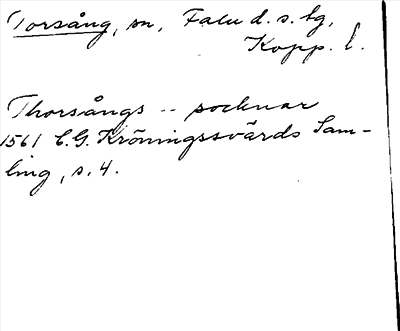 Torsång, sn, Falu d. s. lg,
Kopp. l.
Thorsångs -- socknar
1561 C. G. Kröningssvärds Sam-
ling, s. 4.